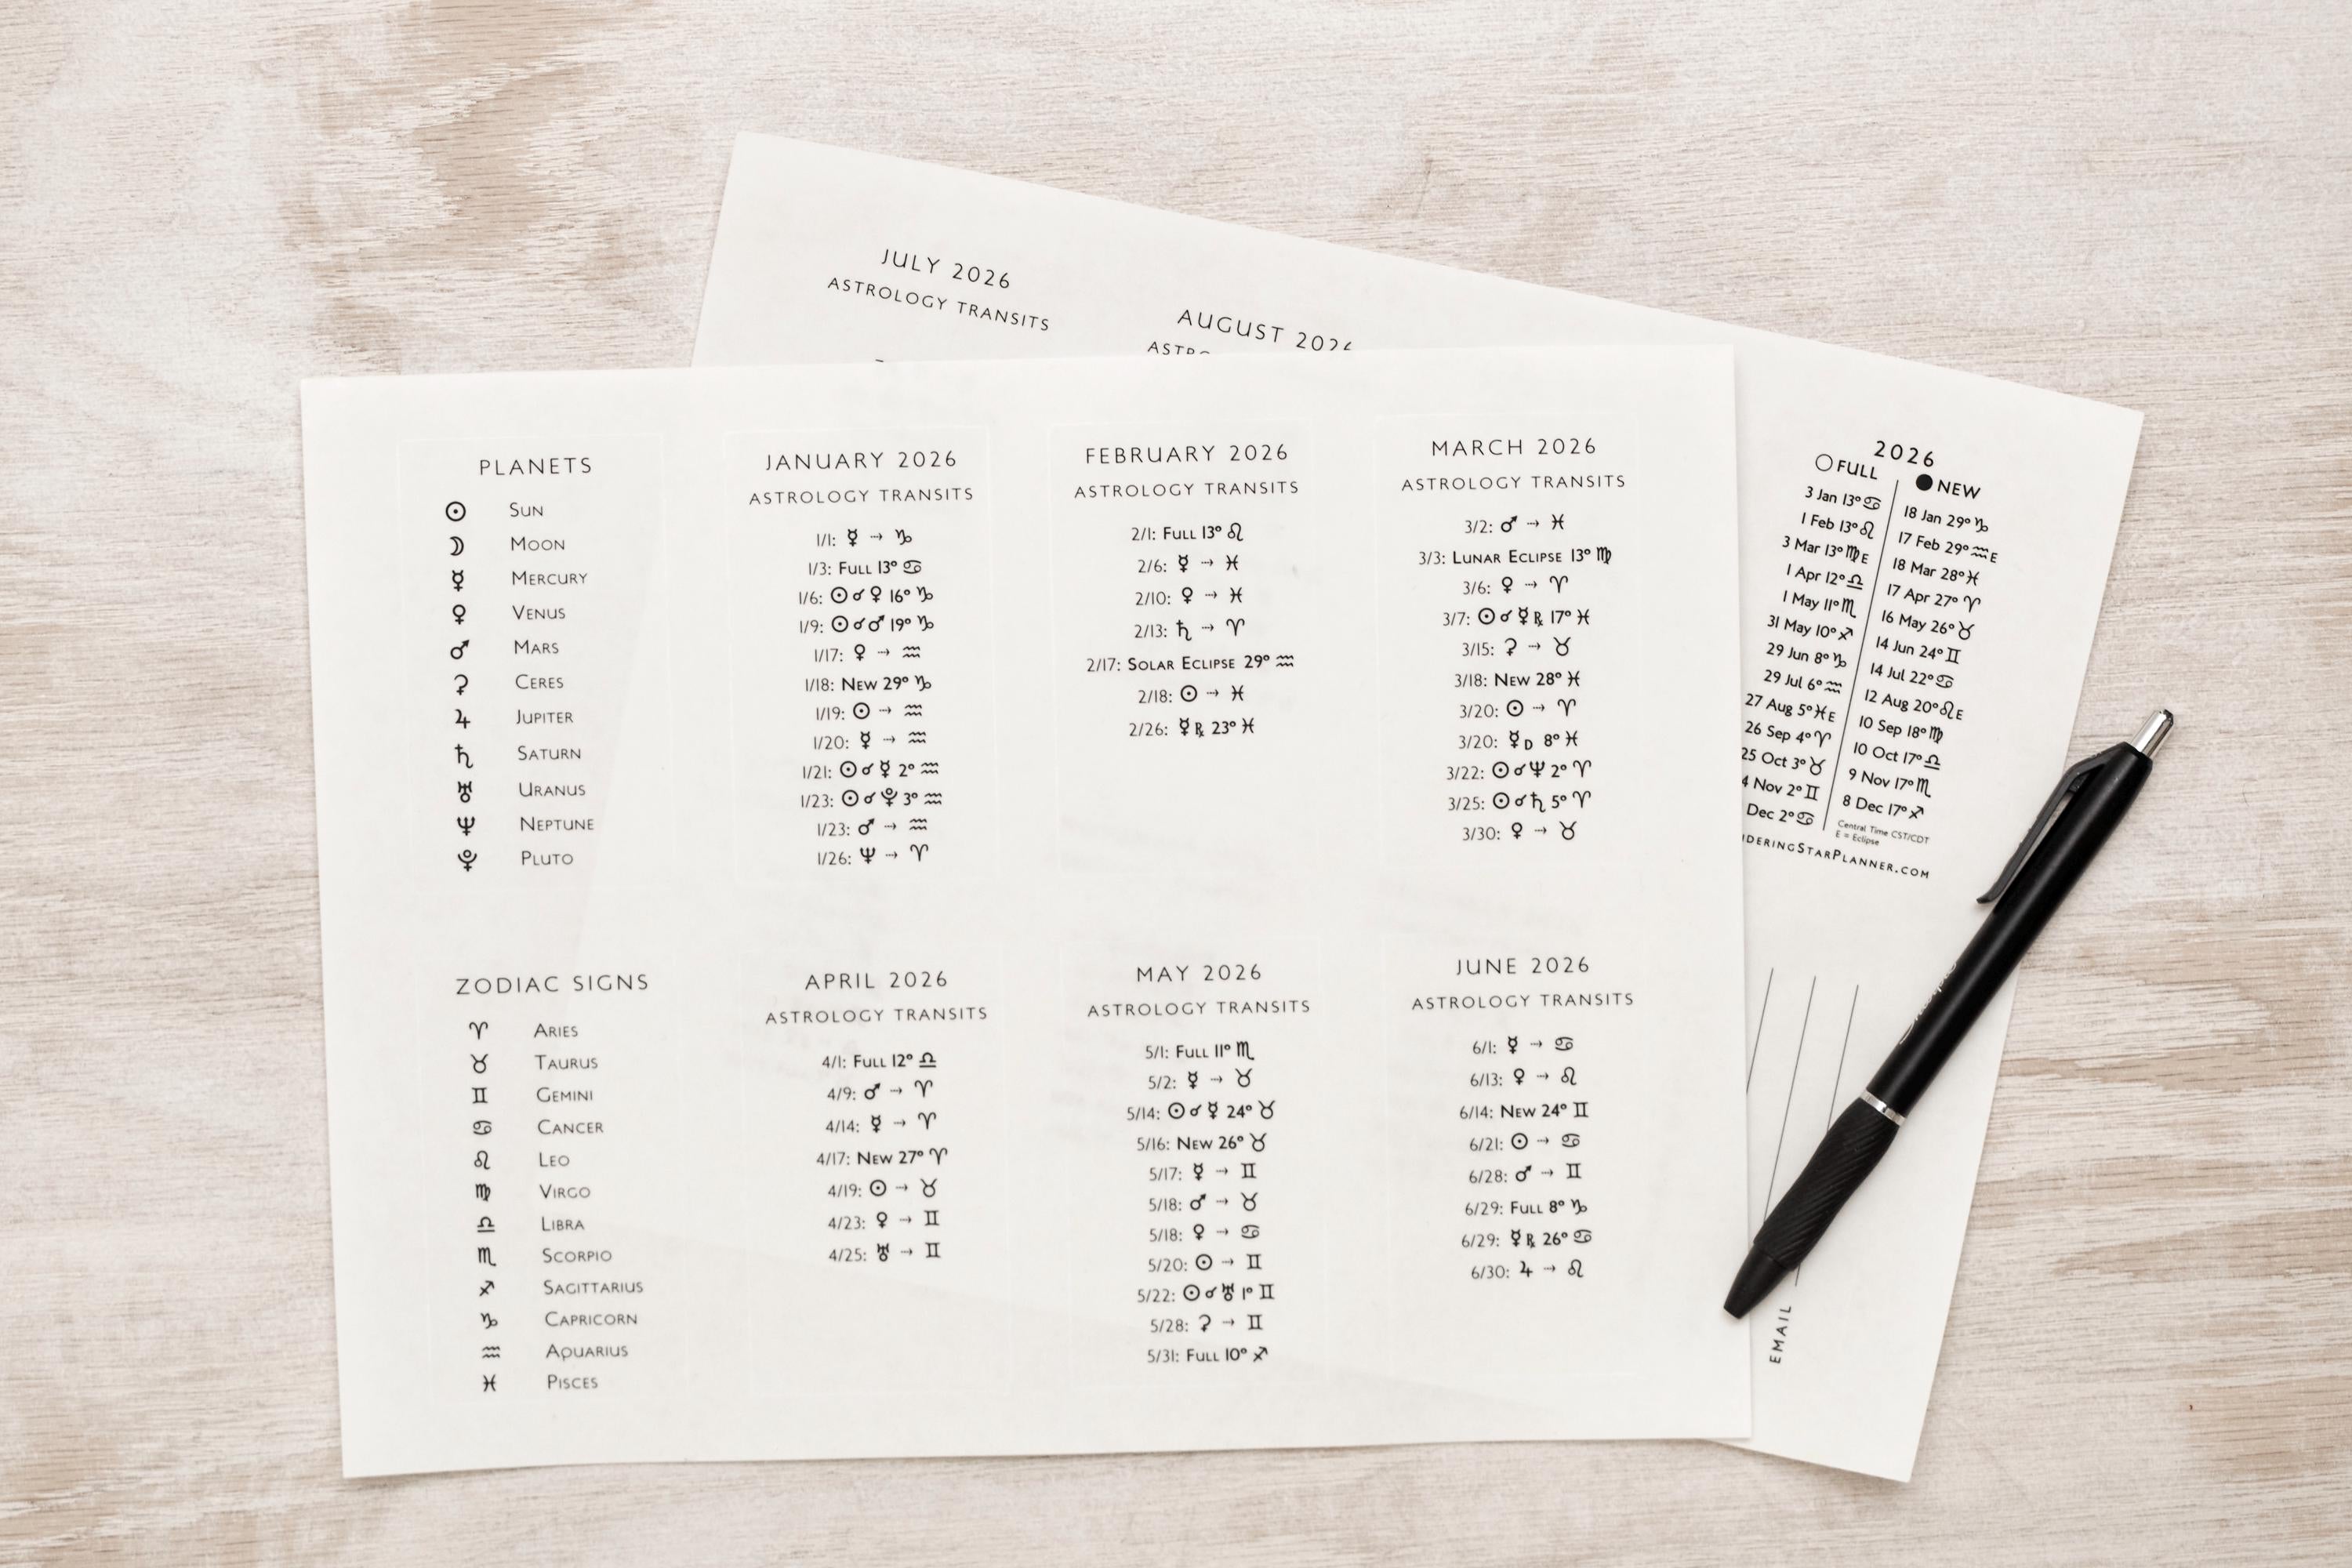 JULY 2026
ASTROLOGY TRANSITS
AUGUST
PLANETS
☉ SUN
☽ MOON
☿ MERCURY
♀ VENUS
♂ MARS
⚳ CERES
♃ JUPITER
♄ SATURN
♅ URANUS
♆ NEPTUNE
⯓ PLUTO
JANUARY 2026
ASTROLOGY TRANSITS
1/1: ☿ → ♑
1/3: FULL 13° ♋
1/6: ☉ ☌ ♀ 16° ♑
1/9: ☉ ☌ ♂ 19° ♑
1/17: ♀ → ♒
1/18: NEW 29° ♑
1/19: ☉ → ♒
1/20: ☿ → ♒
1/21: ☉ ☌ ☿ 2° ♒
1/23: ☉ ☌ ⯓ 3° ♒
1/23: ♂ → ♒
1/26: ♆ → ♈
FEBRUARY 2026
ASTROLOGY TRANSITS
2/1: FULL 13° ♌
2/6: ☿ → ♓
2/10: ♀ → ♓
2/13: ♄ → ♈
2/17: SOLAR ECLIPSE 29° ♒
2/18: ☉ → ♓
2/26: ☿ ℞ 23° ♓
MARCH 2026
ASTROLOGY TRANSITS
3/2: ♂ → ♓
3/3: LUNAR ECLIPSE 13° ♍
3/6: ♀ → ♈
3/7: ☉ ☌ ☿ ℞ 17° ♓
3/15: ⚳ → ♉
3/18: NEW 28° ♓
3/20: ☉ → ♈
3/20: ☿ D 8° ♓
3/22: ☉ ☌ ♆ 2° ♈
3/25: ☉ ☌ ♄ 5° ♈
3/30: ♀ → ♉
ZODIAC SIGNS
♈ ARIES
♉ TAURUS
♊ GEMINI
♋ CANCER
♌ LEO
♍ VIRGO
♎ LIBRA
♏ SCORPIO
♐ SAGITTARIUS
♑ CAPRICORN
♒ AQUARIUS
♓ PISCES
APRIL 2026
ASTROLOGY TRANSITS
4/1: FULL 12° ♎
4/9: ♂ → ♈
4/14: ☿ → ♈
4/17: NEW 27° ♈
4/19: ☉ → ♉
4/23: ♀ → ♊
4/25: ♅ → ♊
MAY 2026
ASTROLOGY TRANSITS
5/1: FULL 11° ♏
5/2: ☿ → ♉
5/14: ☉ ☌ ☿ 24° ♉
5/16: NEW 26° ♉
5/17: ☿ → ♊
5/18: ♂ → ♉
5/18: ♀ → ♋
5/20: ☉ → ♊
5/22: ☉ ☌ ♅ 1° ♊
5/28: ⚳ → ♊
5/31: FULL 10° ♐
JUNE 2026
ASTROLOGY TRANSITS
6/1: ☿ → ♋
6/13: ♀ → ♌
6/14: NEW 24° ♊
6/21: ☉ → ♋
6/28: ♂ → ♊
6/29: FULL 8° ♑
6/29: ☿ ℞ 26° ♋
6/30: ♃ → ♌
2026
○ FULL
3 Jan 13° ♋
1 Feb 13° ♌
3 Mar 13° ♍ E
1 Apr 12° ♎
1 May 11° ♏
31 May 10° ♐
29 Jun 8° ♑
29 Jul 6° ♒
27 Aug 5° ♓ E
26 Sep 4° ♈
25 Oct 3° ♉
Nov 2° ♊
Dec 2° ♋
● NEW
18 Jan 29° ♑
17 Feb 29° ♒ E
18 Mar 28° ♓
17 Apr 27° ♈
16 May 26° ♉
14 Jun 24° ♊
14 Jul 22° ♋
12 Aug 20° ♌ E
10 Sep 18° ♍
10 Oct 17° ♎
9 Nov 17° ♏
8 Dec 17° ♐
Central Time CST/CDT
E = Eclipse
DERINGSTARPLANNER.COM
EMAIL